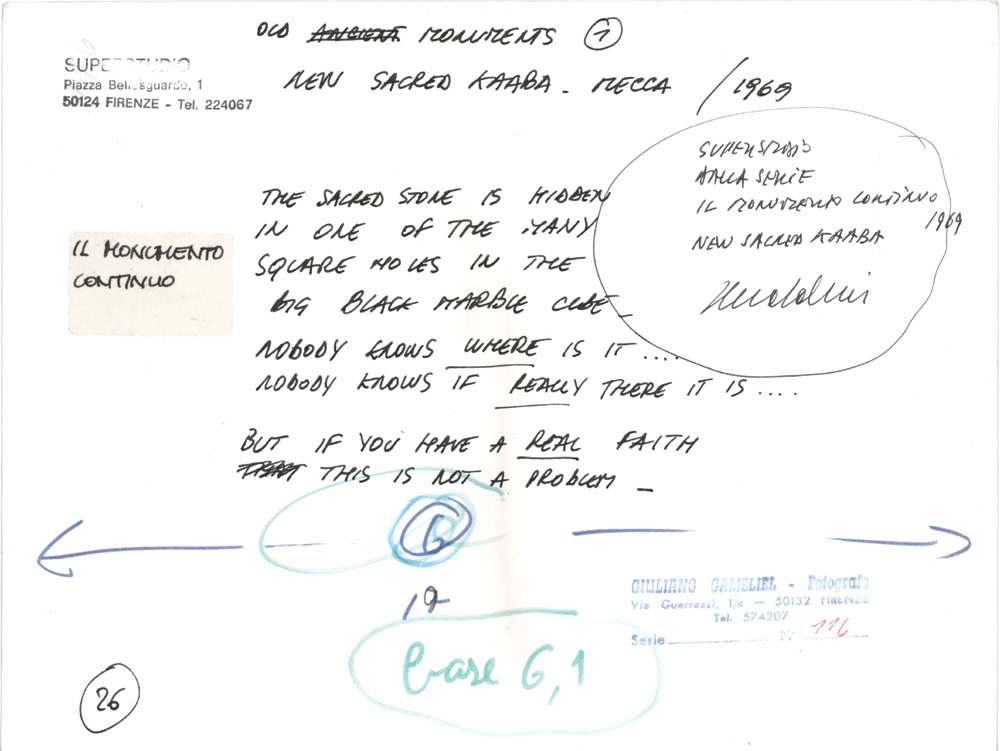 OLD ANCIENT MONUMENTS 1
SUPERSTUDIO
Piazza Bellosguardo, 1
50124 FIRENZE - Tel. 224067
NEW SACRED KAABA - MECCA / 1969
SUPERSTUDIO
DALLA SERIE
IL MONUMENTO CONTINUO
1969
NEW SACRED KAABA
IL MONUMENTO
CONTINUO
THE SACRED STONE IS HIDDEN
IN ONE OF THE MANY
SQUARE HOLES IN THE
BIG BLACK MARBLE CUBE _
NOBODY KNOWS WHERE IS IT ....
NOBODY KNOWS IF REALLY THERE IT IS ....
BUT IF YOU HAVE A REAL FAITH
THIS IS NOT A PROBLEM _
6
19
GIULIANO GAMELIEL - Fotografo
Via Guerrazzi, 1/c - 50132 FIRENZE
Tel. 574207
Serie N. 116
base 6,1
26